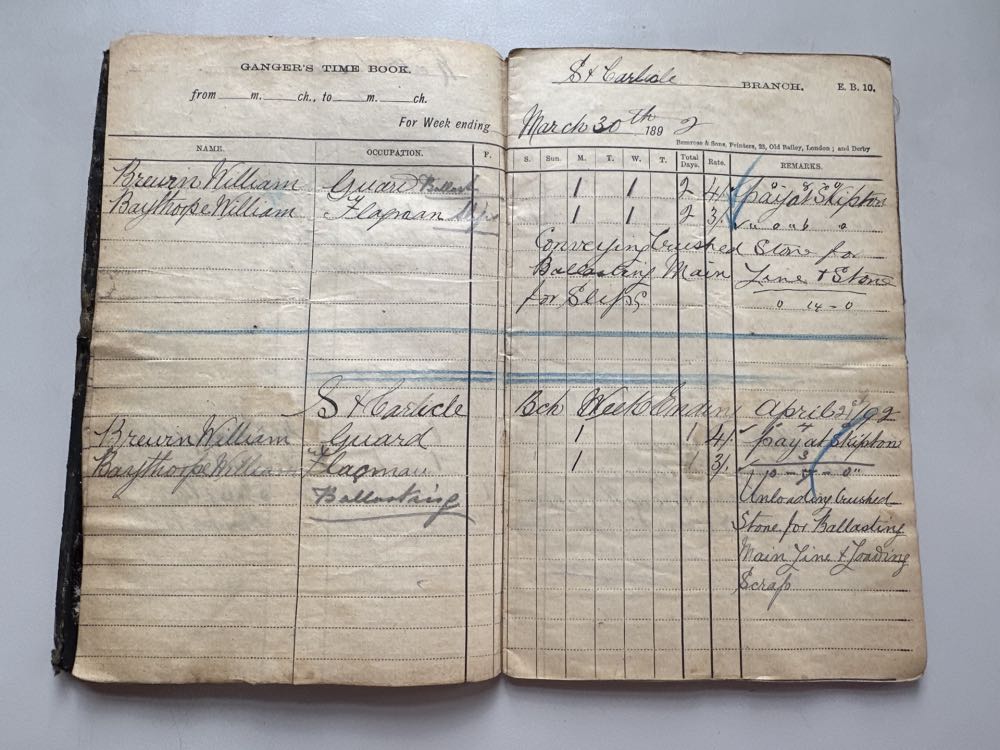 GANGER'S TIME BOOK.
from m. ch., to m. ch.
For Week ending
S & Carlisle BRANCH. E. B. 10.
March 30th 1892
Bemrose & Sons, Printers, 23, Old Bailey, London; and Derby
NAME. OCCUPATION. F. S. Sun. M. T. W. T. Total Days. Rate. REMARKS.
Brewin William Guard Ballast 1 1 2 4/. pay at Skipton
Baythorpe William Flagman 1 1 2 3/.
Conveying Crushed Stone for
Ballasting Main Line & Stone
for Slips
0 14 - 0
S & Carlisle Bch Week Ending April 92
Brewin William Guard 1 1 4/. pay at Skipton
Baythorpe William Flagman 1 1 3/.
Ballasting
Unloading Crushed
Stone for Ballasting
Main Line & Loading
Scrap